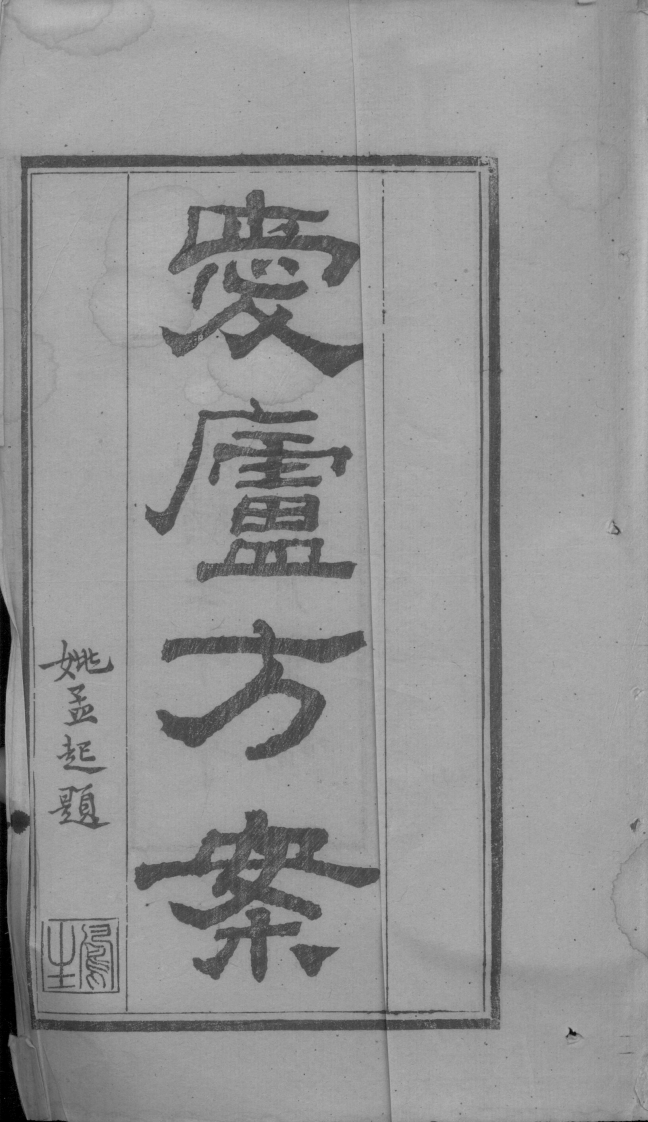 愛廬方案
姚孟起題